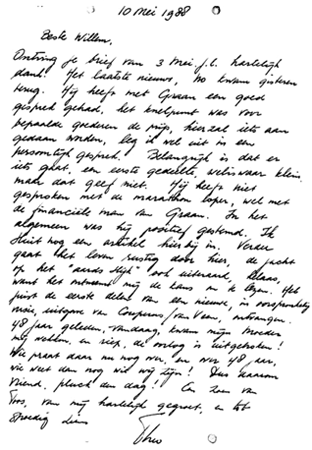 10 mei 1988
Beste Willem,
Ontving je brief van 3 mei j.l. hartelijk
dank. Het laatste nieuws, No kwam gisteren
terug. Hij heeft met Graan een goed
gesprek gehad, het knelpunt was voor
bepaalde goederen de prijs, hier zal iets aan
gedaan worden, leg ik wel uit in een
persoonlijk gesprek. Belangrijk is dat er
iets gaat, een eerste gedeelte, weliswaar klein
maar dat geeft niet. Hij heeft niet
gesproken met de marathon loper, wel met
de financiële man van Graan. In het
algemeen was hij positief gestemd. Ik
sluit nog een artikel hierbij in. Verder
gaat het leven rustig door hier, de jacht
op het "aards slijk" ook uiteraard, helaas,
want het ontneemt mij de kans om te lezen. Heb
juist de eerste delen van een nieuwe, in oorspronkelijk
mooie, uitgave van Couperus van Veen, ontvangen.
48 jaar geleden, vandaag, kwam mijn moeder
mij wekken, en riep, de oorlog is uitgebroken!
Wie praat daar nu nog over, en over 48 jaar,
wie weet dan nog wie wij zijn! Dus daarom
vriend, pluk den dag! En Zoen van
Troos, van mij hartelijk gegroet, en tot
spoedig ziens
Theo